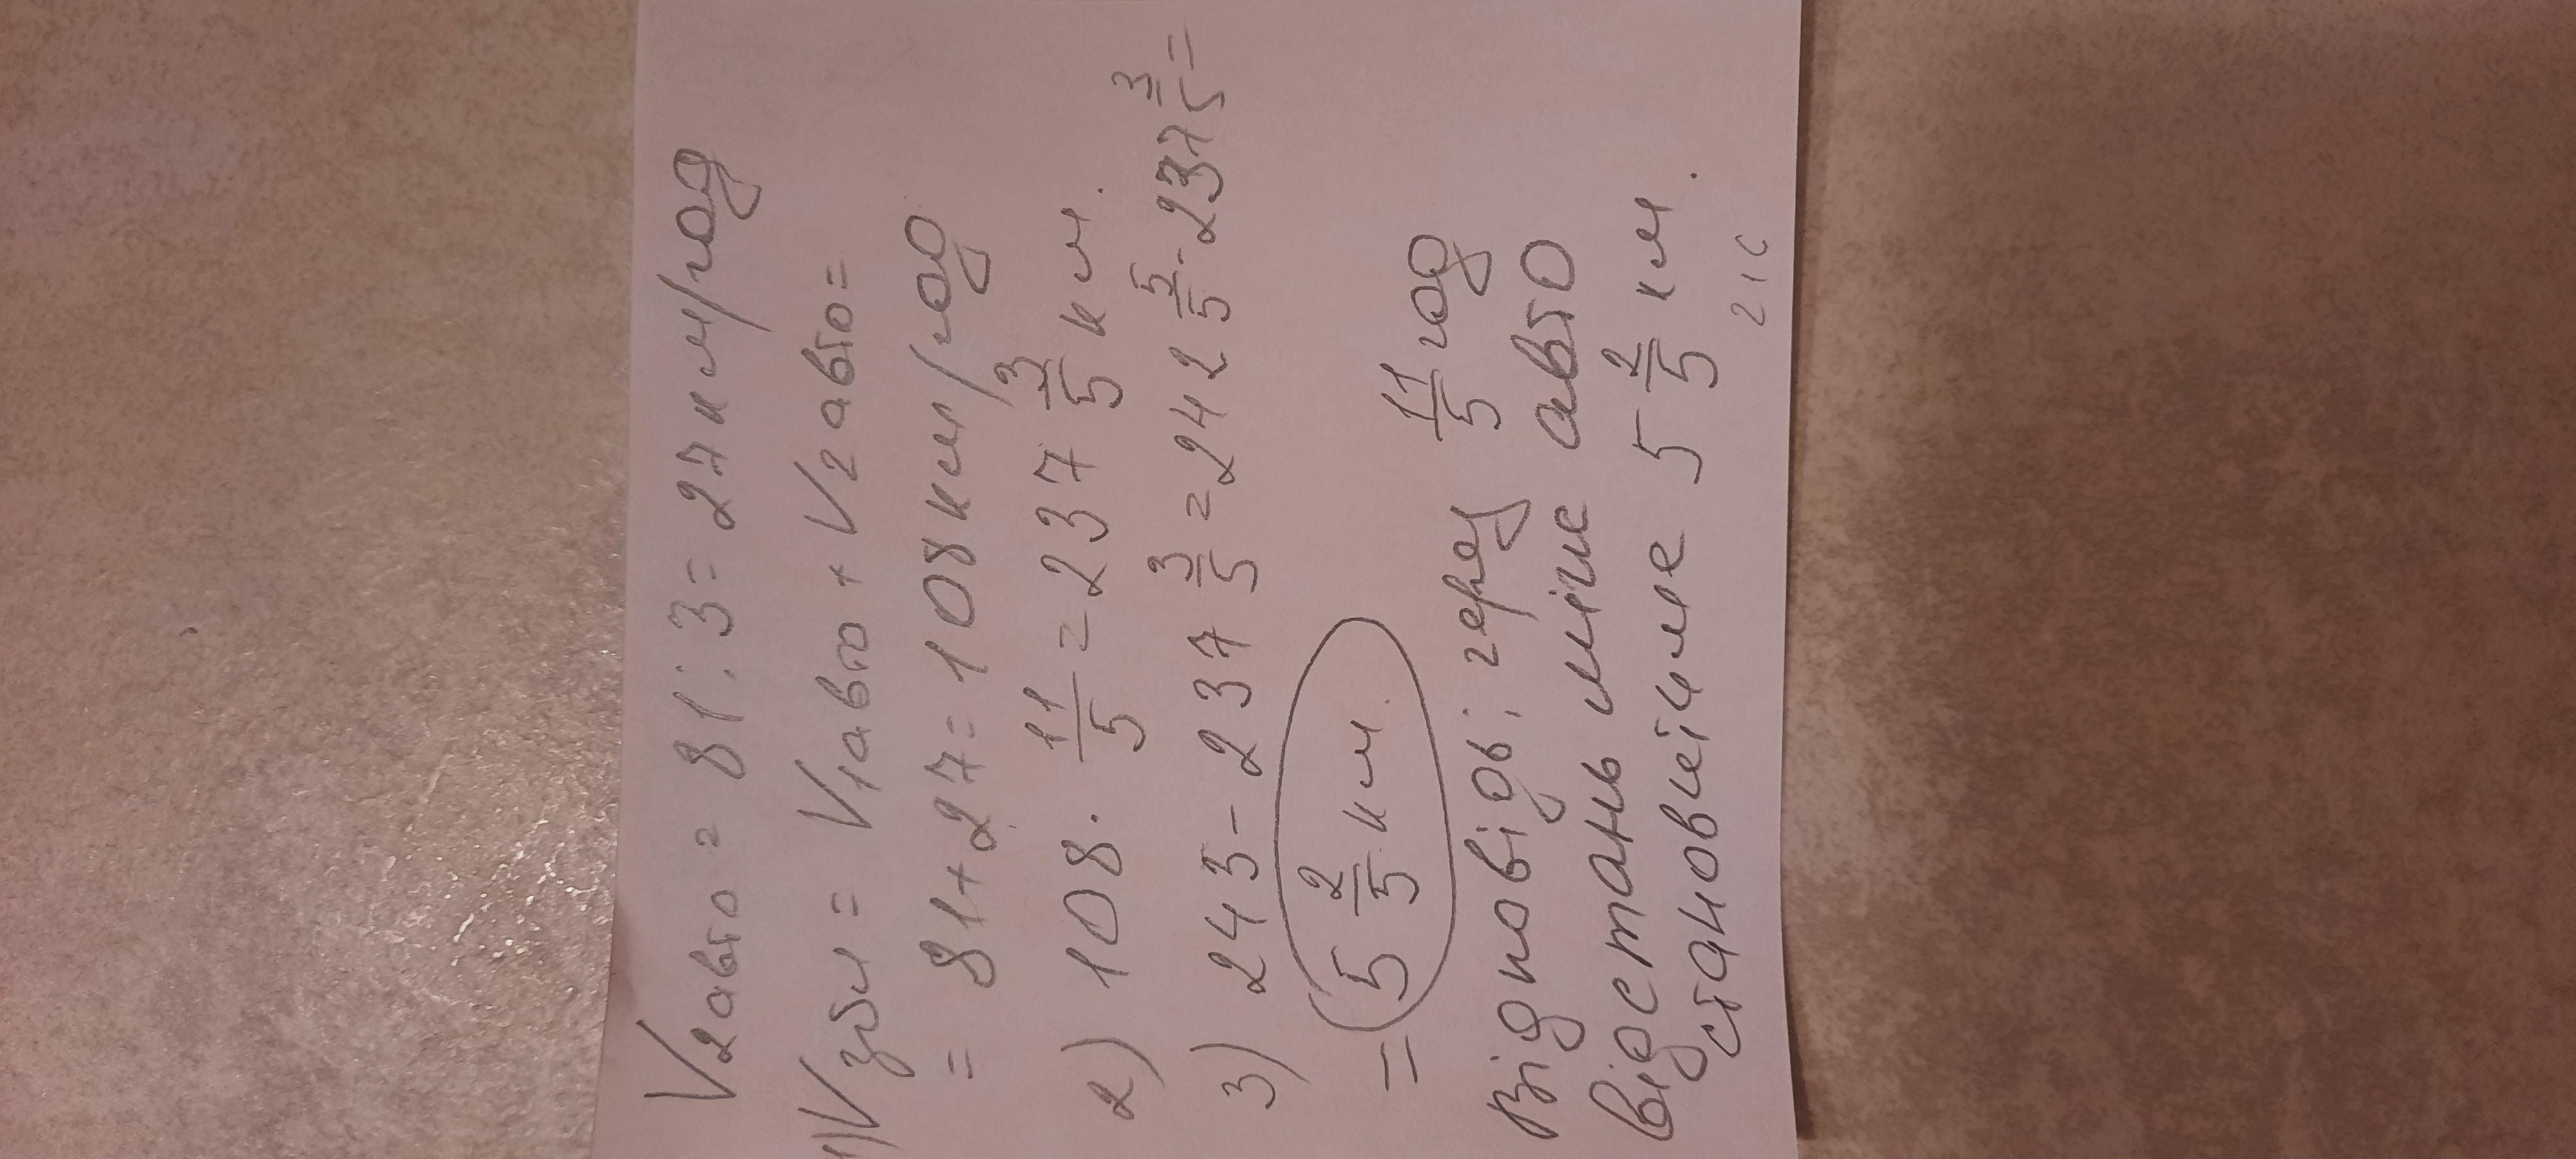 V2авто = 81 : 3 = 27 км/год
1) Vзбл = V1авто + V2авто =
= 81 + 27 = 108 км/год
2) 108 · 11/5 = 237 3/5 км.
3) 243 - 237 3/5 = 242 5/5 - 237 3/5 =
= 5 2/5 км.
Відповідь: через 11/5 год
відстань між авто
становитиме 5 2/5 км.